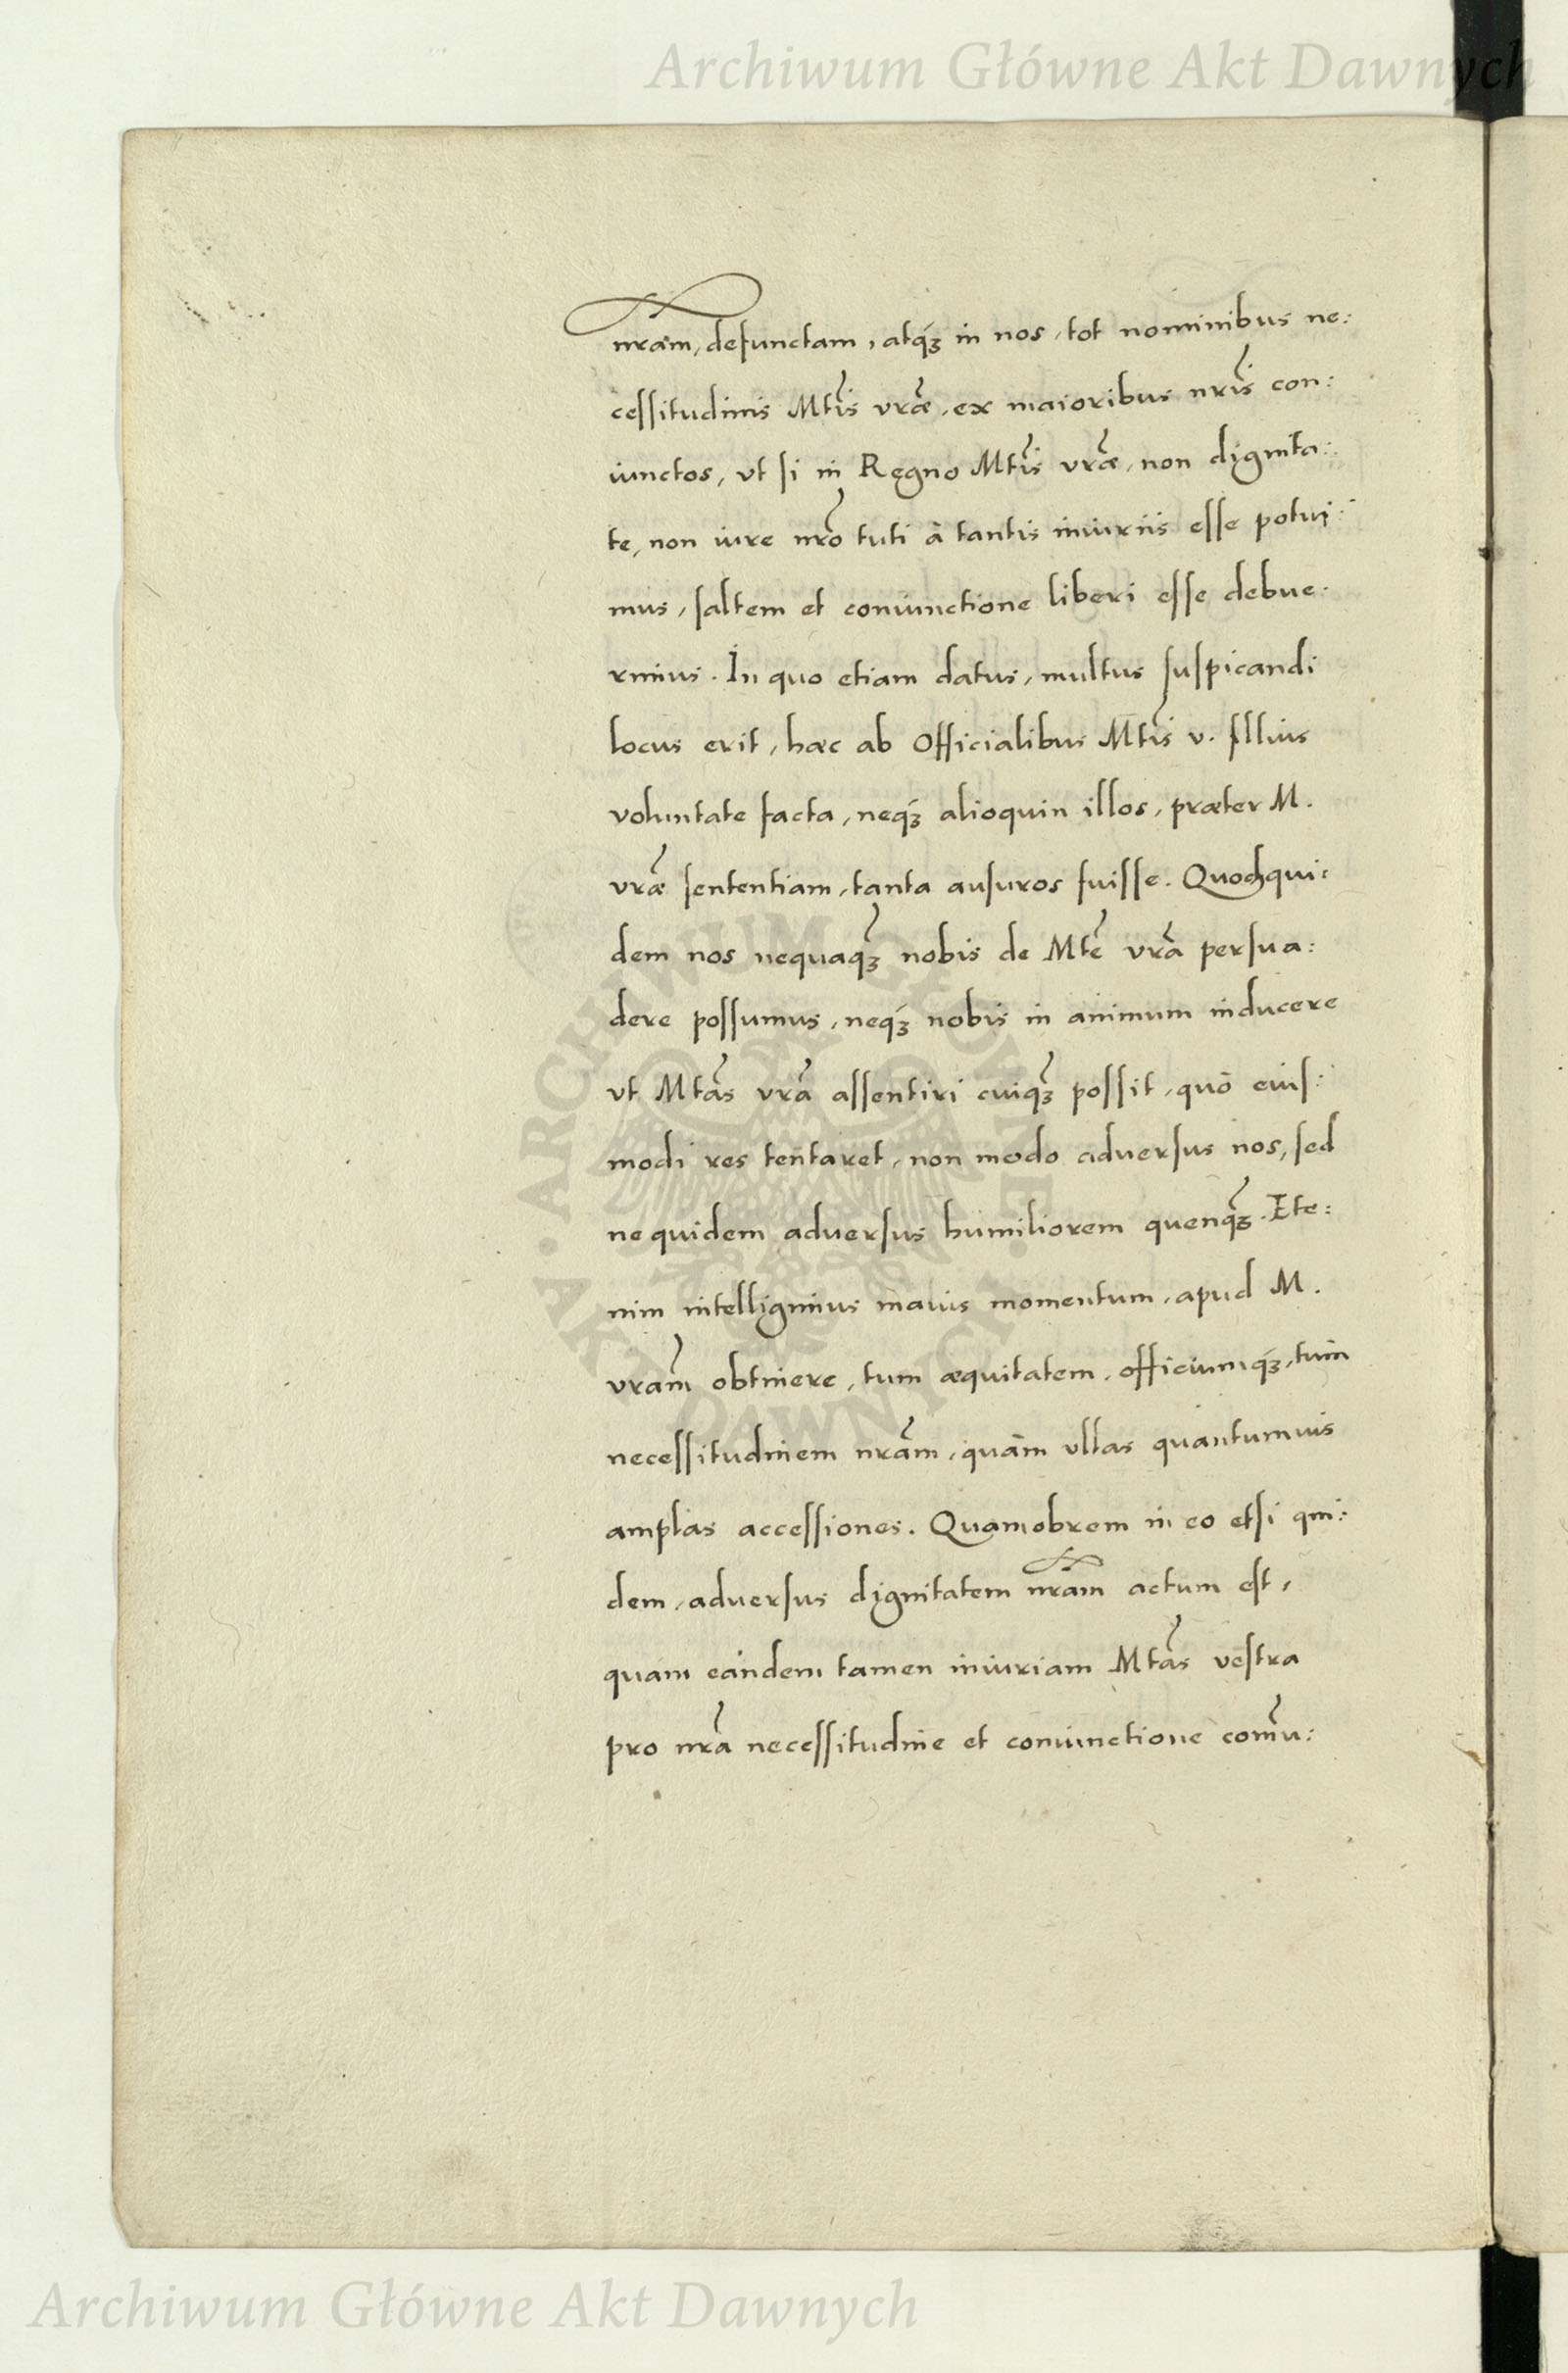 Archiwum Główne Akt Dawnych
nram̃, defunctam, atq́ꝫ in nos, tot nominibus ne:
cessitudinis Mtis̃ vrãe, ex maioribus nris̃ con:
iunctos, vt si in Regno Mtis̃ vrãe, non dignita:
te, non iure nrõ tuti à tantis iniuriis esse potui:
mus, saltem et coniunctione liberi esse debue:
rimus. In quo etiam datus, multus suspicandi
locus erit, haec ab Officialibus Mtis̃ v. Illius
voluntate facta, neq́ꝫ alioquin illos, praeter M.
vrãe sententiam, tanta ausuros fuisse. Quod qui:
dem nos nequaq̃ꝫ nobis de Mtẽ vrã persua:
dere possumus, neq́ꝫ nobis in animum inducere
vt Mtãs vrã assentiri cuiq̃ꝫ possit, quò eius:
modi res tentaret, non modo aduersus nos, sed
ne quidem aduersus humiliorem quenq̃ꝫ. Ete:
nim intelligimus maius momentum, apud M.
vrãm obtinere, tum aequitatem, officiumq́ꝫ, tum
necessitudinem nrãm, quàm vllas quantumuis
amplas accessiones. Quamobrem in eo etsi qui:
dem, aduersus dignitatem nrãm actum est,
quam eandem tamen iniuriam Mtãs vestra
pro nrã necessitudine et coniunctione com̃u:
ARCHIWUM GŁÓWNE
AKT DAWNYCH
Archiwum Główne Akt Dawnych